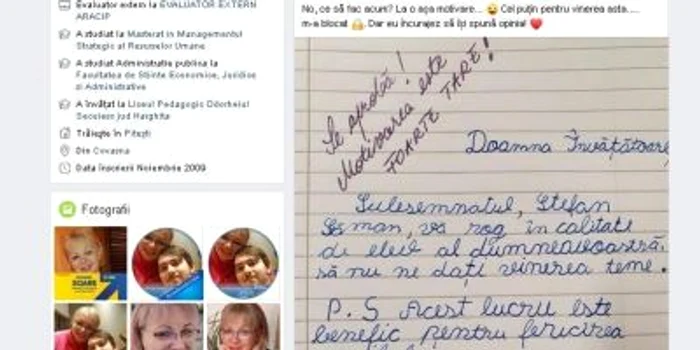 Evaluator extern la EVALUATOR EXTERN
ARACIP
A studiat la Masterat in Managementul
Strategic al Resurselor Umane
A studiat Administratie publica la
Facultatea de Stiinte Economice, Juridice
si Administrative
A învățat la Liceul Pedagogic Odorheiul
Secuiesc jud Harghita
Trăiește în Pitești
Din Covasna
Data înscrierii Noiembrie 2009
Fotografii
SOARE
No, ce să fac acum? La o așa motivare... Cel puțin pentru vinerea asta.....
m-a blocat. Dar eu încurajez să își spună opinia!
Se aprobă!
Motivarea este
FOARTE TARE!
Doamna Învățătoare,
Subsemnatul, Ștefan
man, vă rog în calitate
de elev al dumneavoastră,
să nu ne dați vinerea teme.
P.S Acest lucru este
benefic pentru fericirea